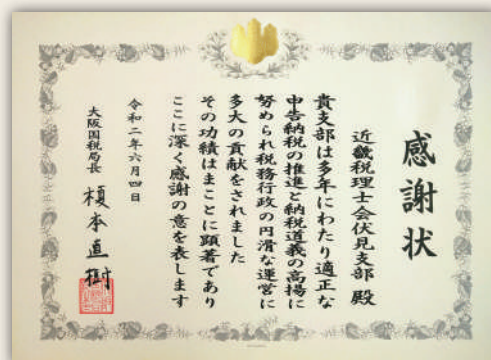 感謝状
近畿税理士会伏見支部 殿
貴支部は多年にわたり適正な
申告納税の推進と納税道義の高揚に
努められ税務行政の円滑な運営に
多大の貢献をされました
その功績はまことに顕著であり
ここに深く感謝の意を表します
令和二年六月四日
大阪国税局長 榎本直樹